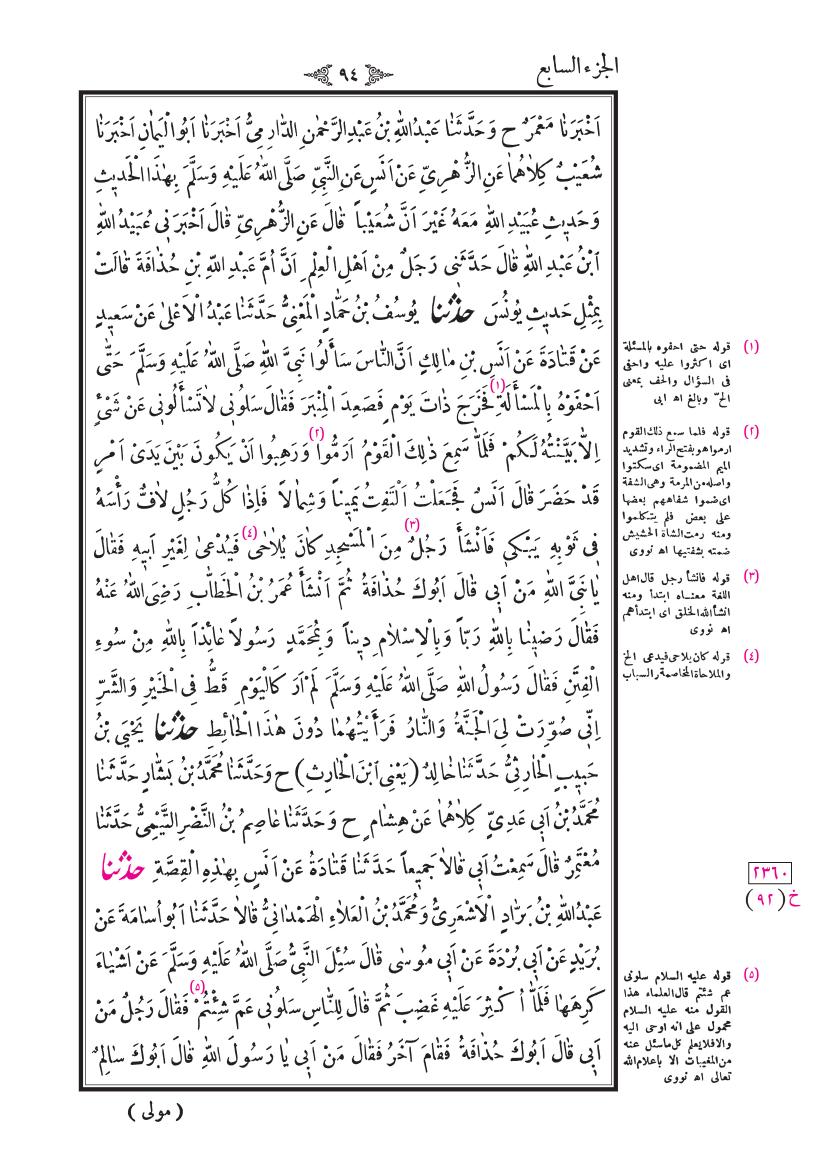 الجزء السابع
٩٤
اَخْبَرَنَا مَعْمَرٌ ح وَحَدَّثَنَا عَبْدُاللّٰهِ بْنُ عَبْدِالرَّحْمٰنِ الدَّارِمِىُّ اَخْبَرَنَا اَبُوالْيَمَانِ اَخْبَرَنَا
شُعَيْبٌ كِلَاهُمَا عَنِ الزُّهْرِىِّ عَنْ اَنَسٍ عَنِ النَّبِىِّ صَلَّى اللّٰهُ عَلَيْهِ وَسَلَّمَ بِهٰذَا الْحَدِيثِ
وَحَدِيثِ عُبَيْدِ اللّٰهِ مَعَهُ غَيْرَ اَنَّ شُعَيْباً قَالَ عَنِ الزُّهْرِىِّ قَالَ اَخْبَرَنِى عُبَيْدُ اللّٰهِ
ابْنُ عَبْدِ اللّٰهِ قَالَ حَدَّثَنِى رَجُلٌ مِنْ اَهْلِ الْعِلْمِ اَنَّ اُمَّ عَبْدِ اللّٰهِ بْنِ حُذَافَةَ قَالَتْ
بِمِثْلِ حَدِيثِ يُونُسَ حَدَّثَنَا يُوسُفُ بْنُ حَمَّادٍ الْمَعْنِىُّ حَدَّثَنَا عَبْدُ الْاَعْلٰى عَنْ سَعِيدٍ
عَنْ قَتَادَةَ عَنْ اَنَسِ بْنِ مَالِكٍ اَنَّ النَّاسَ سَأَلُوا نَبِىَّ اللّٰهِ صَلَّى اللّٰهُ عَلَيْهِ وَسَلَّمَ حَتّٰى
اَحْفَوْهُ بِالْمَسْأَلَةِ (١) فَخَرَجَ ذَاتَ يَوْمٍ فَصَعِدَ الْمِنْبَرَ فَقَالَ سَلُونِى لَاتَسْأَلُونِى عَنْ شَىْءٍ
اِلَّا بَيَّنْتُهُ لَكُمْ فَلَمَّا سَمِعَ ذٰلِكَ الْقَوْمُ اَرَمُّوا (٢) وَرَهِبُوا اَنْ يَكُونَ بَيْنَ يَدَىْ اَمْرٍ
قَدْ حَضَرَ قَالَ اَنَسٌ فَجَعَلْتُ اَلْتَفِتُ يَمِيناً وَشِمَالاً فَاِذَا كُلُّ رَجُلٍ لَافٌّ رَأْسَهُ
فِى ثَوْبِهِ يَبْكِى فَاَنْشَأَ رَجُلٌ (٣) مِنَ الْمَسْجِدِ كَانَ يُلَاحٰى (٤) فَيُدْعٰى لِغَيْرِ اَبِيهِ فَقَالَ
يَا نَبِىَّ اللّٰهِ مَنْ اَبِى قَالَ اَبُوكَ حُذَافَةُ ثُمَّ اَنْشَأَ عُمَرُ بْنُ الْخَطَّابِ رَضِىَ اللّٰهُ عَنْهُ
فَقَالَ رَضِينَا بِاللّٰهِ رَبّاً وَبِالْاِسْلَامِ دِيناً وَبِمُحَمَّدٍ رَسُولاً عَائِذاً بِاللّٰهِ مِنْ سُوءِ
الْفِتَنِ فَقَالَ رَسُولُ اللّٰهِ صَلَّى اللّٰهُ عَلَيْهِ وَسَلَّمَ لَمْ اَرَ كَالْيَوْمِ قَطُّ فِى الْخَيْرِ وَالشَّرِّ
اِنِّى صُوِّرَتْ لِىَ الْجَنَّةُ وَالنَّارُ فَرَأَيْتُهُمَا دُونَ هٰذَا الْحَائِطِ حَدَّثَنَا يَحْيَى بْنُ
حَبِيبٍ الْحَارِثِىُّ حَدَّثَنَا خَالِدٌ (يَعْنِى ابْنَ الْحَارِثِ) ح وَحَدَّثَنَا مُحَمَّدُ بْنُ بَشَّارٍ حَدَّثَنَا
مُحَمَّدُ بْنُ اَبِى عَدِىٍّ كِلَاهُمَا عَنْ هِشَامٍ ح وَحَدَّثَنَا عَاصِمُ بْنُ النَّضْرِ التَّيْمِىُّ حَدَّثَنَا
مُعْتَمِرٌ قَالَ سَمِعْتُ اَبِى قَالَا جَمِيعاً حَدَّثَنَا قَتَادَةُ عَنْ اَنَسٍ بِهٰذِهِ الْقِصَّةِ حَدَّثَنَا
عَبْدُاللّٰهِ بْنُ بَرَّادٍ الْاَشْعَرِىُّ وَمُحَمَّدُ بْنُ الْعَلَاءِ الْهَمْدَانِىُّ قَالَا حَدَّثَنَا اَبُو اُسَامَةَ عَنْ
بُرَيْدٍ عَنْ اَبِى بُرْدَةَ عَنْ اَبِى مُوسٰى قَالَ سُئِلَ النَّبِىُّ صَلَّى اللّٰهُ عَلَيْهِ وَسَلَّمَ عَنْ اَشْيَاءَ
كَرِهَهَا فَلَمَّا اُكْثِرَ عَلَيْهِ غَضِبَ ثُمَّ قَالَ لِلنَّاسِ سَلُونِى عَمَّ شِئْتُمْ (٥) فَقَالَ رَجُلٌ مَنْ
اَبِى قَالَ اَبُوكَ حُذَافَةُ فَقَامَ آخَرُ فَقَالَ مَنْ اَبِى يَا رَسُولَ اللّٰهِ قَالَ اَبُوكَ سَالِمٌ
(مولى)
(١) قوله حتى احفوه بالمسئلة
اى اكثروا عليه واحفى
فى السؤال والحف بمعنى
الحّ وبالغ اه ابى
(٢) قوله فلما سمع ذلك القوم
ارموا هو بفتح الراء وتشديد
الميم المضمومة اى سكتوا
واصله من المرمة وهى الشفة
اى ضموا شفاههم بعضها
على بعض فلم يتكلموا
ومنه رمت الشاة الحشيش
ضمته بشفتيها اه نووى
(٣) قوله فانشأ رجل قال اهل
اللغة معناه ابتدأ ومنه
انشأ الله الخلق اى ابتدأهم
اه نووى
(٤) قوله كان يلاحى فيدعى الخ
والملاحاة المخاصمة والسباب
٢٣٦٠
خ (٩٢)
(٥) قوله عليه السلام سلونى
عم شئتم قال العلماء هذا
القول منه عليه السلام
محمول على انه اوحى اليه
والافلا يعلم كل ماسئل عنه
من المغيبات الا باعلام الله
تعالى اه نووى